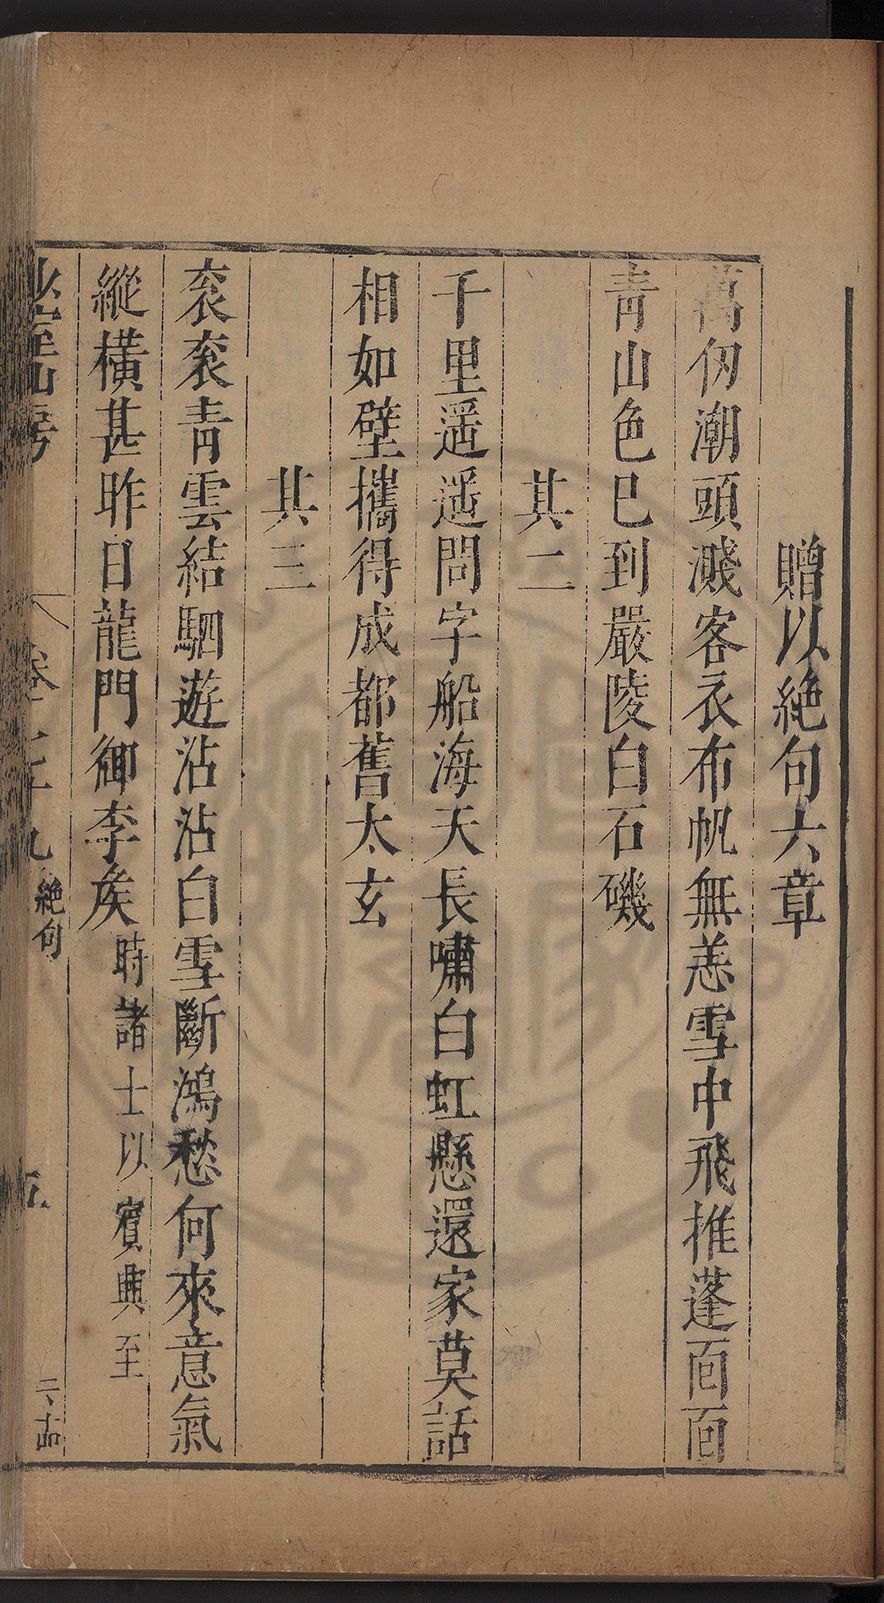 贈以絶句六章
萬仞潮頭濺客衣布帆無恙雪中飛推蓬面面
青山色已到嚴陵白石磯
其二
千里遥遥問字船海天長嘯白虹懸還家莫話
相如璧攜得成都舊太玄
其三
衮衮青雲結駟遊沾沾白雪斷鴻愁何來意氣
縱橫甚昨日龍門御李矦時諸士以賓興至
少室山房
卷七十九 絶句
五